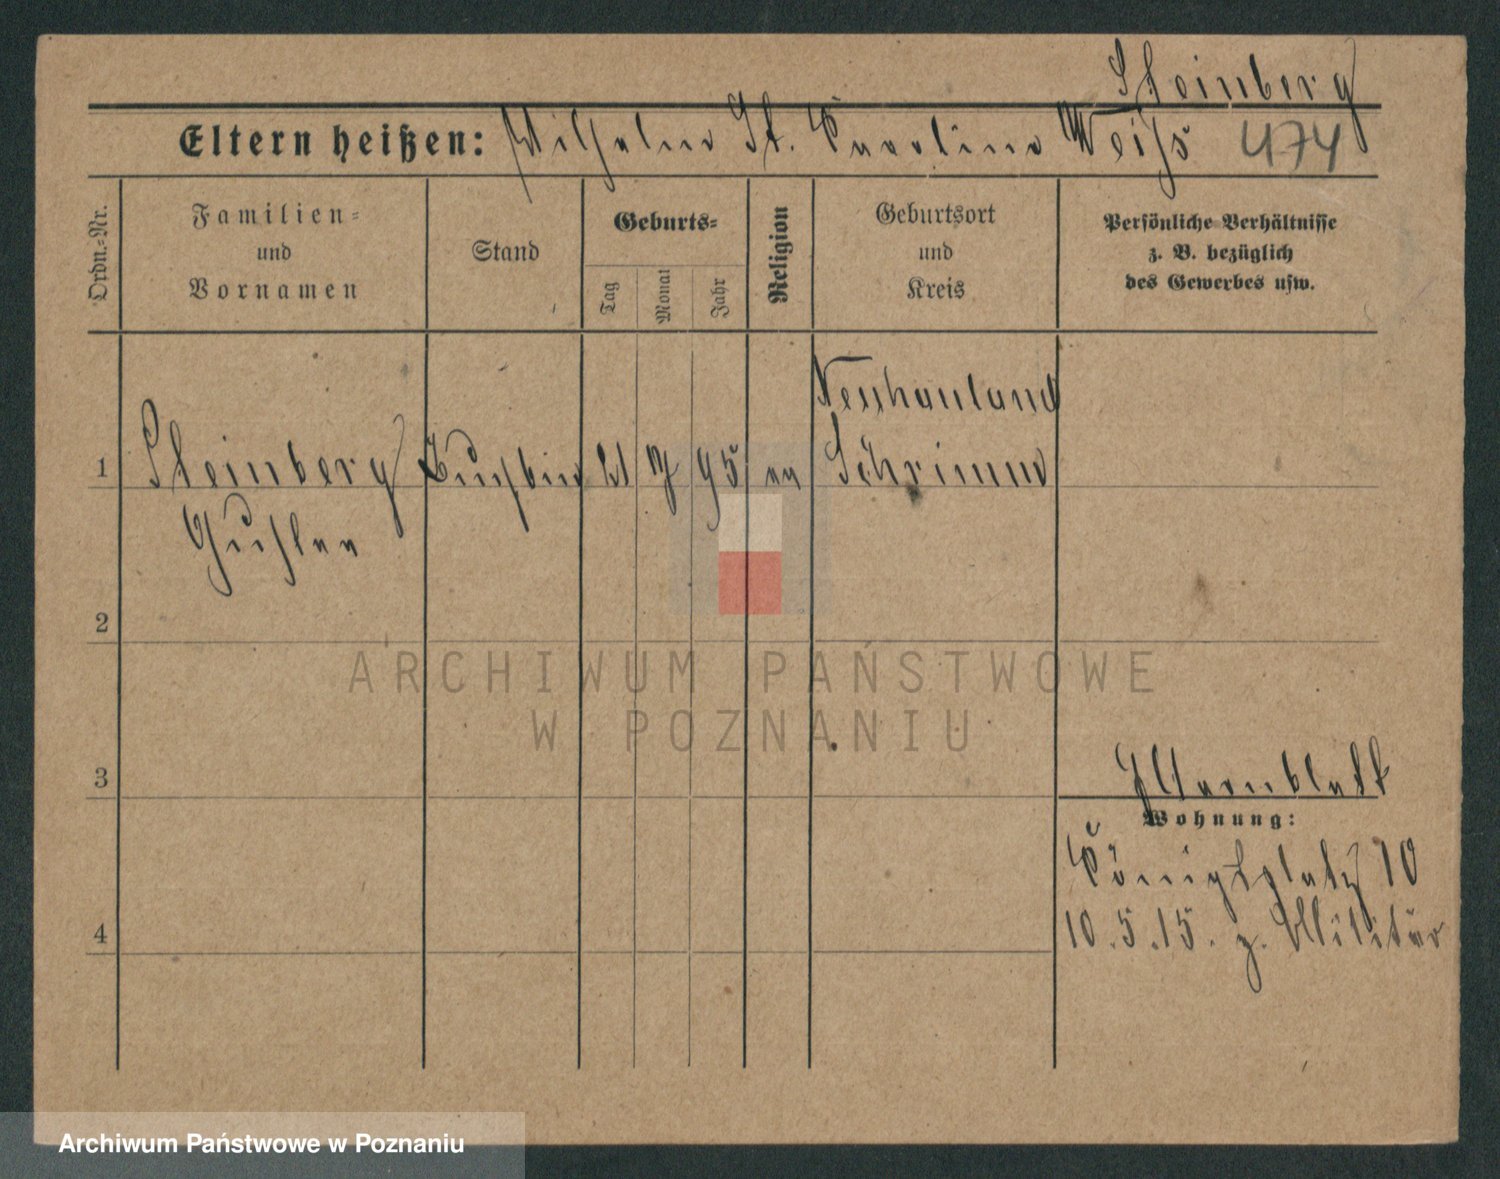 Steinberg
Eltern heißen: Wilhelm St. Karoline Weiß 474
Ordn.-Nr.
Familien-
und
Vornamen
Stand
Geburts-
Tag
Monat
Jahr
Religion
Geburtsort
und
Kreis
Persönliche Verhältnisse
z. B. bezüglich
des Gewerbes usw.
Neuhauland
1 Steinberg 95 ev Schrimm
Gustav
2
3
Wohnung:
Königsplatz 10
4 10.5.15. z. Militär
ARCHIWUM PAŃSTWOWE
W POZNANIU
Archiwum Państwowe w Poznaniu